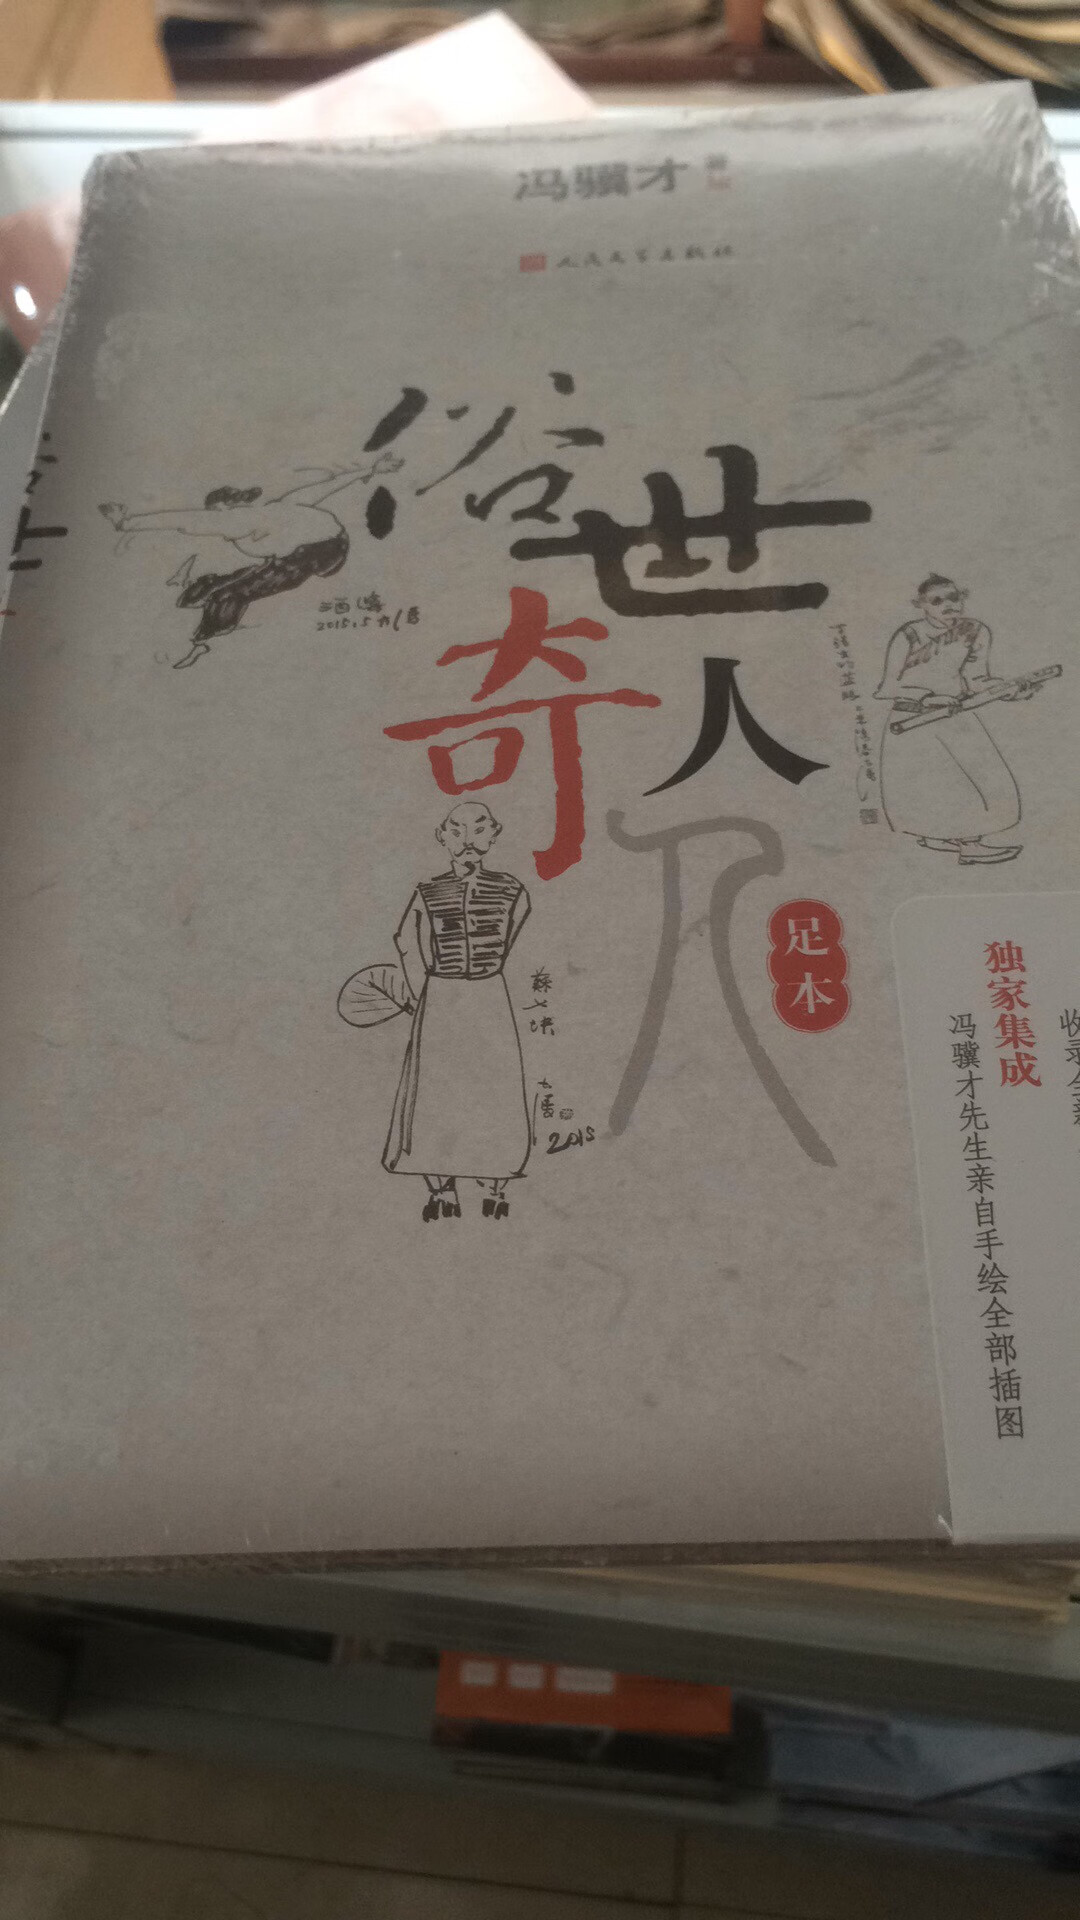 冯骥才 著
人民文学出版社
俗世
奇人
足本
酒婆
2015.5
苏七块
2015
独家集成
冯骥才先生亲自手绘全部插图
收录全新